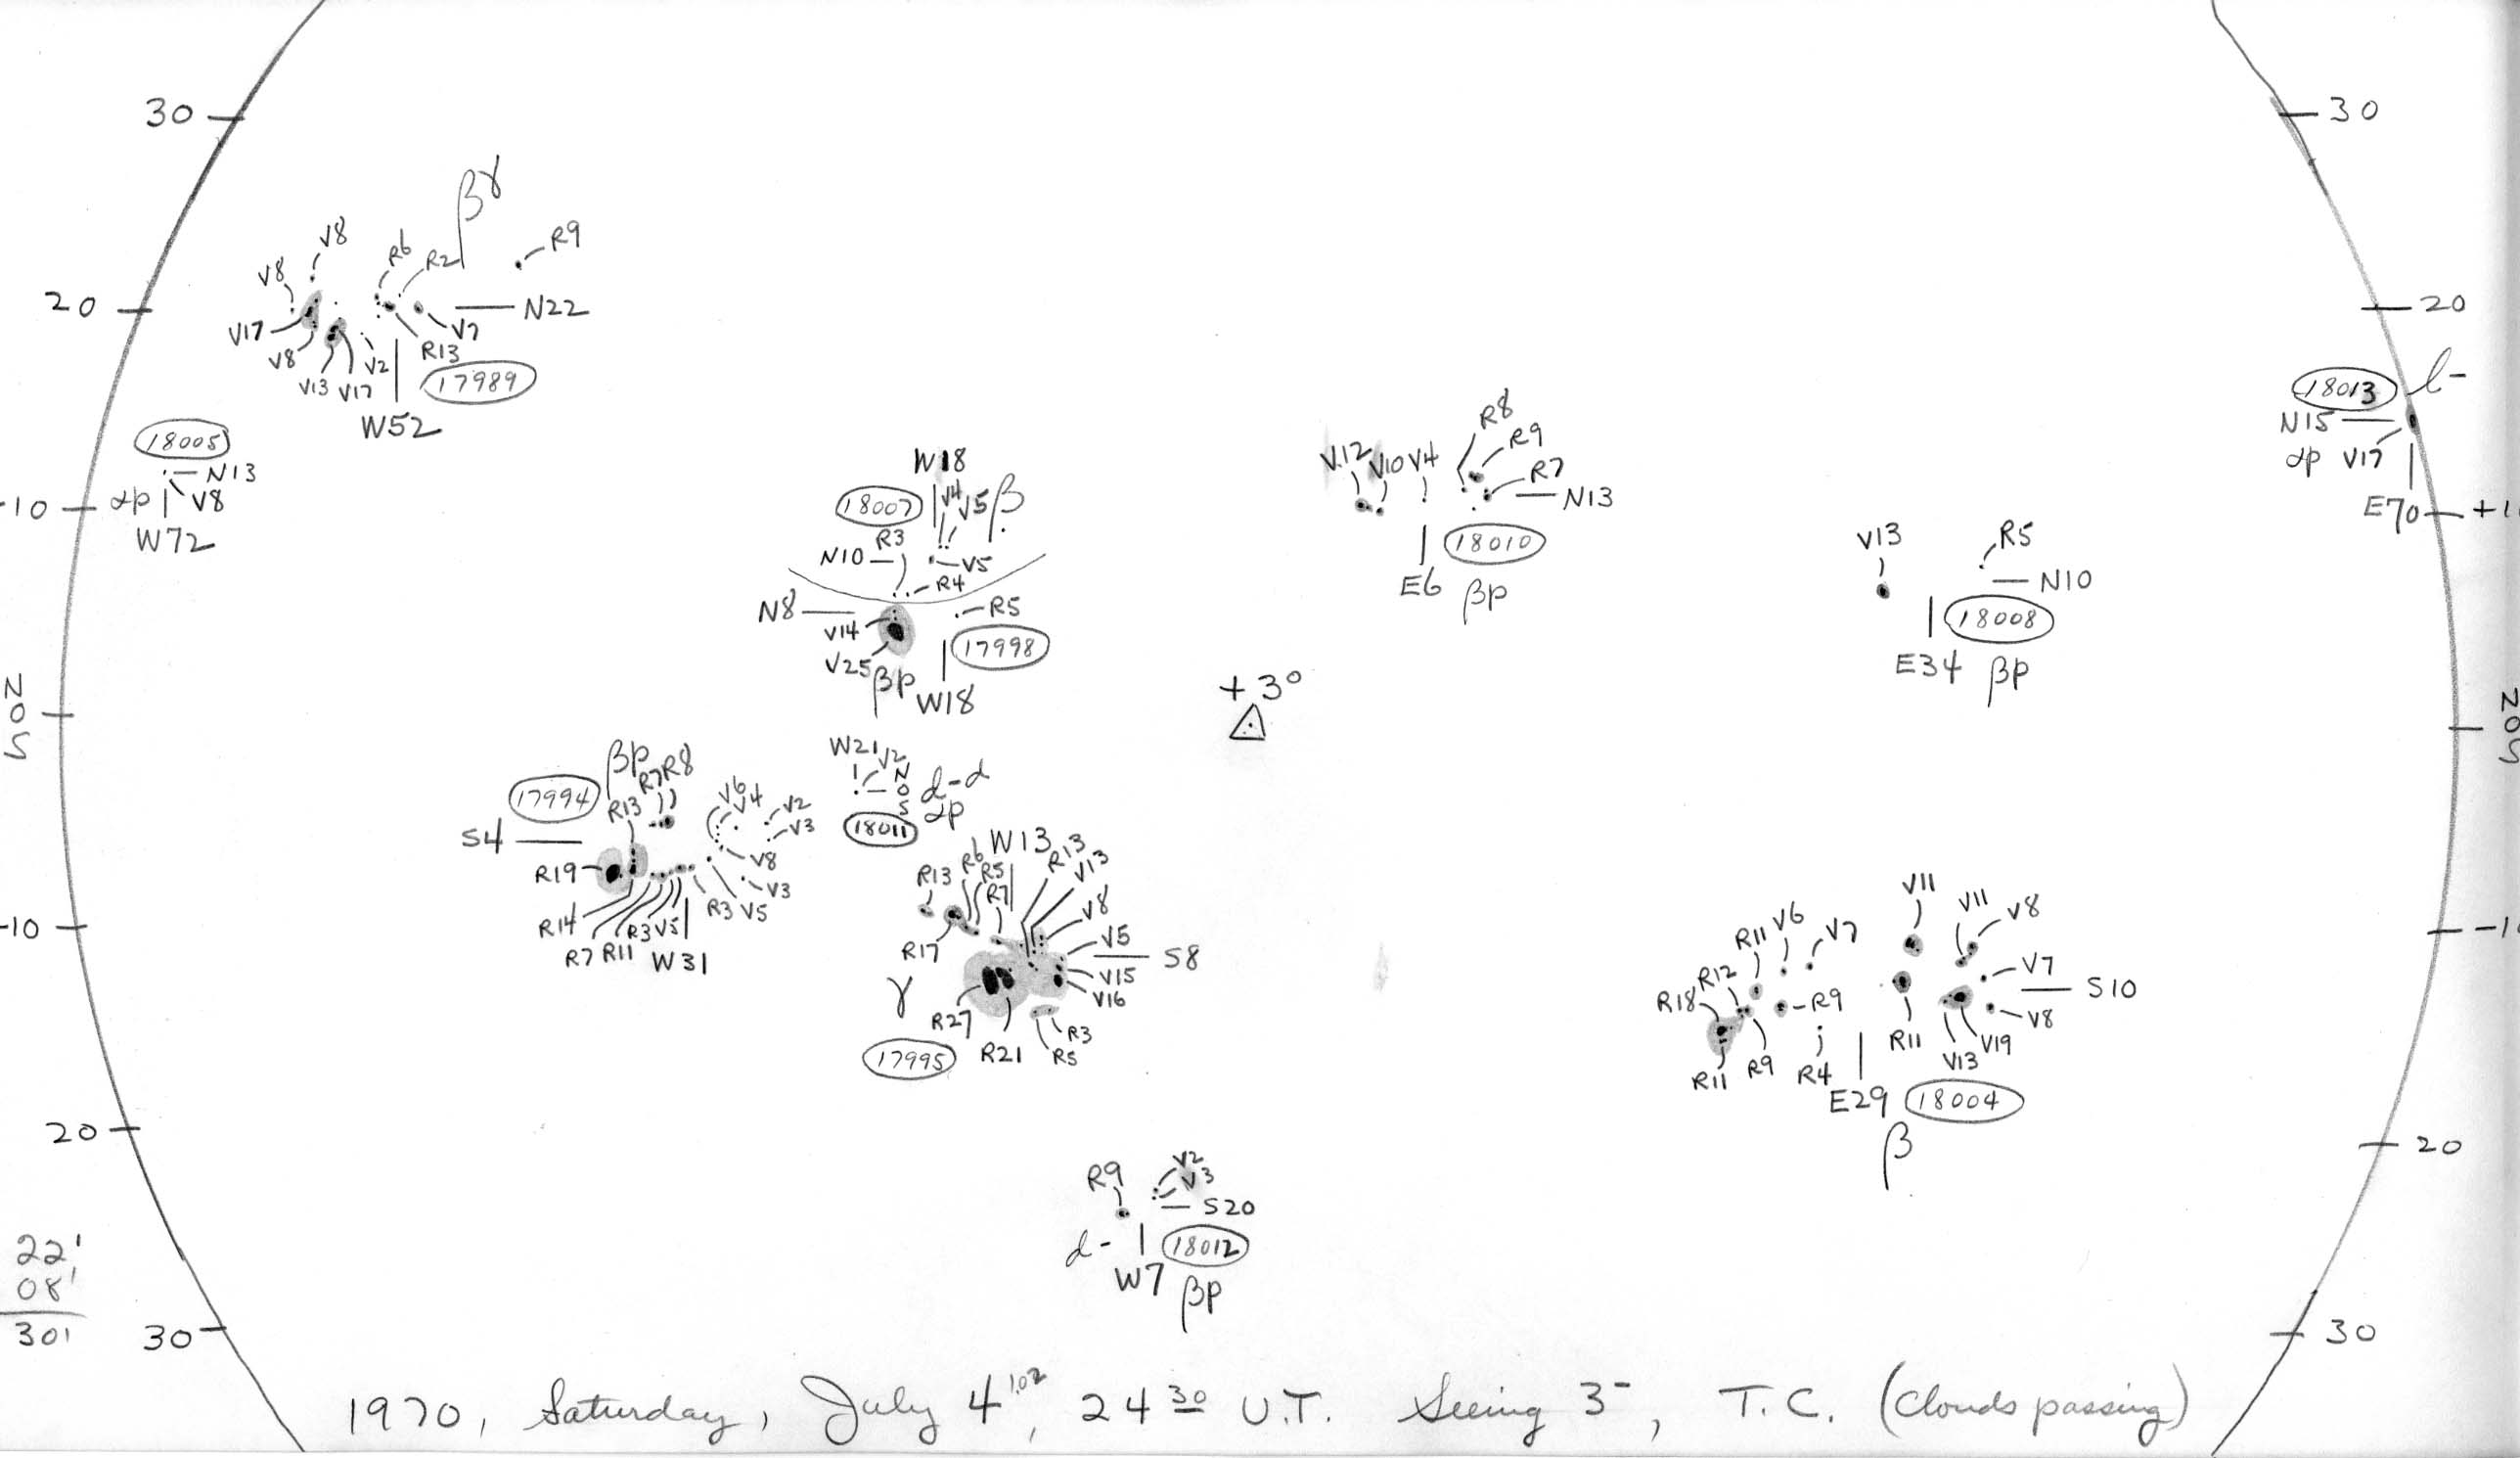 30
30
βγ
V8
R9
R6
R2
V8
20
N22
20
V17
V7
V8
R13
V2
V13 V17
17989
W52
18013
l-
N15
αp V17
E70
18005
N13
αp V8
W72
-10
+1
W18
18007
V4
V5
β
R3
N10
V5
R4
N8
R5
V14
17998
V25
βp
W18
R8
R9
V12
V10
V4
R7
N13
18010
E6
βp
V13
R5
N10
18008
E34
βp
N
0
S
+3°
N
0
S
βp
17994
R7 R8
R13
V6
V4
V2
V3
S4
R19
V8
V3
R14
R3
V5
R7
R11
R3
V5
W31
W21
V2
N
0
S
d-d
αp
18011
W13
R13
R6
R5
R7
R13
V13
V8
V5
S8
R17
V15
V16
γ
R27
R3
R21
R5
17995
-10
-1
V11
V11
V8
V6
R11
V7
R12
V7
S10
R18
R9
V8
R11
V19
V13
R11
R9
R4
E29
18004
β
20
20
R9
V2
V3
S20
d-
18012
W7
βp
22'
08'
301
30
30
1970, Saturday, July 4 1.02, 24 30 U.T. Seeing 3-, T.C. (Clouds passing)